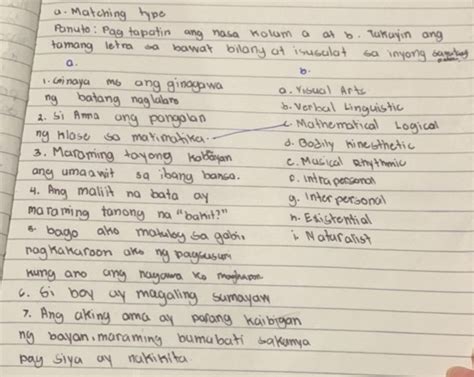 a. Matching type
Panuto: Pag tapatin ang nasa kolum a at b. Tukuyin ang
tamang letra sa bawat bilang at isusulat sa inyong
a.
b.
1. Ginaya mo ang ginagawa
ng batang naglalaro
2. Si Anna ang pangalan
ng klase sa matimatika.
3. Maraming tayong kababayan
ang umaawit sa ibang bansa.
4. Ang maliit na bata ay
maraming tanong na "bakit?"
5. bago ako matulog sa gabi,
nagkakaroon ako ng pagsusuri
kung ano ang nagawa ko
6. Si boy ay magaling sumayaw
7. Ang aking ama ay parang kaibigan
ng bayan, maraming bumabati sakanya
pag siya ay nakikita.
a. Visual Arts
b. Verbal Linguistic
c. Mathematical Logical
d. Bodily kinesthetic
e. Musical rhythmic
f. Intrapersonal
g. Interpersonal
h. Existential
i. Naturalist